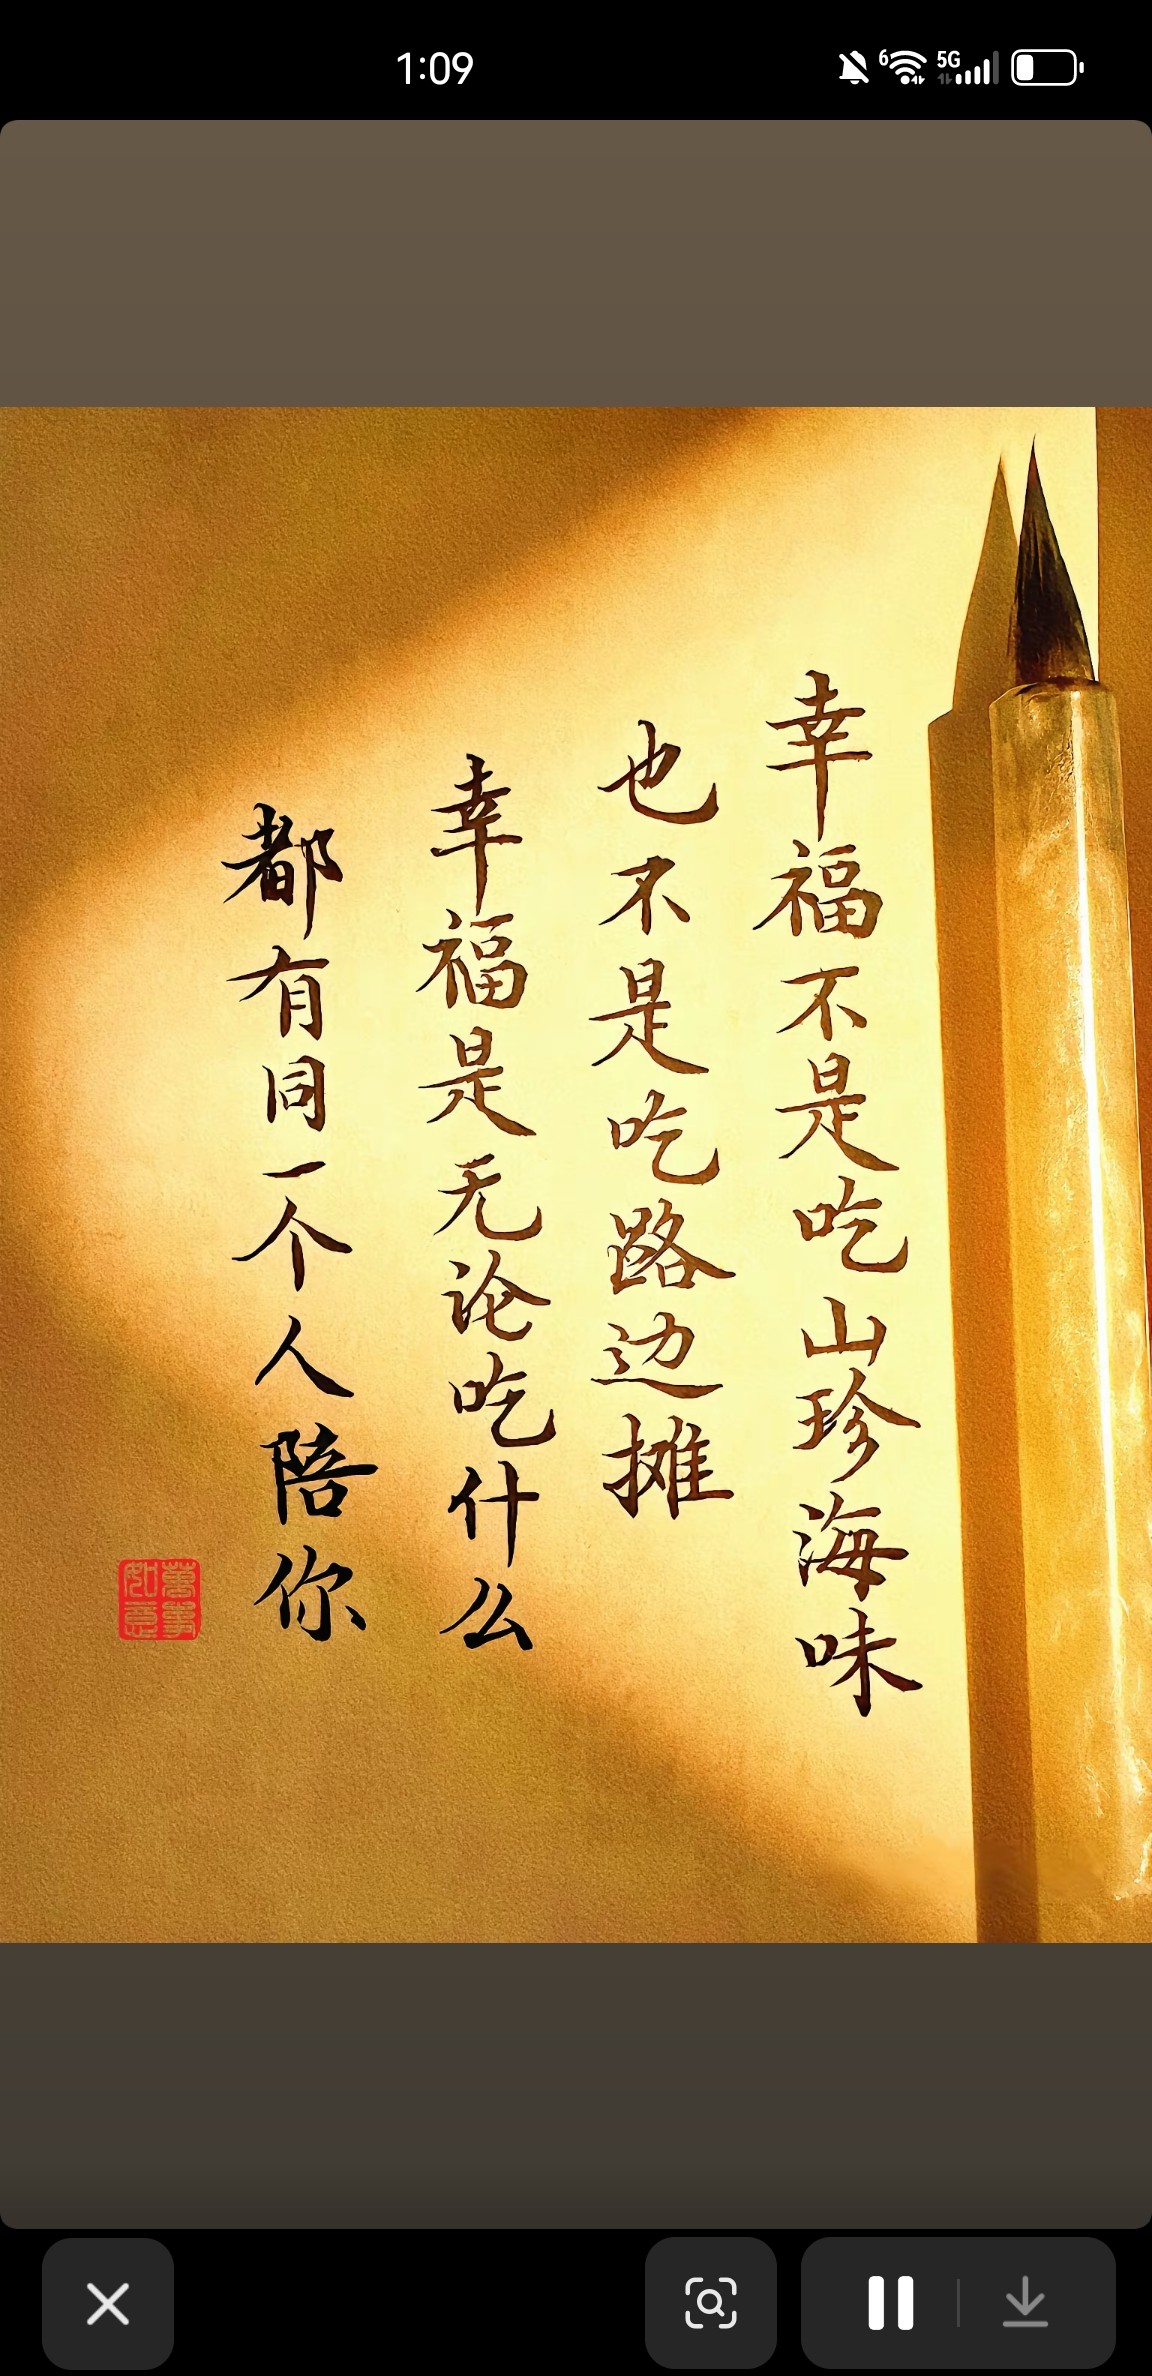 1:09
6
5G
幸福不是吃山珍海味
也不是吃路边摊
幸福是无论吃什么
都有同一个人陪你
萬事
如意